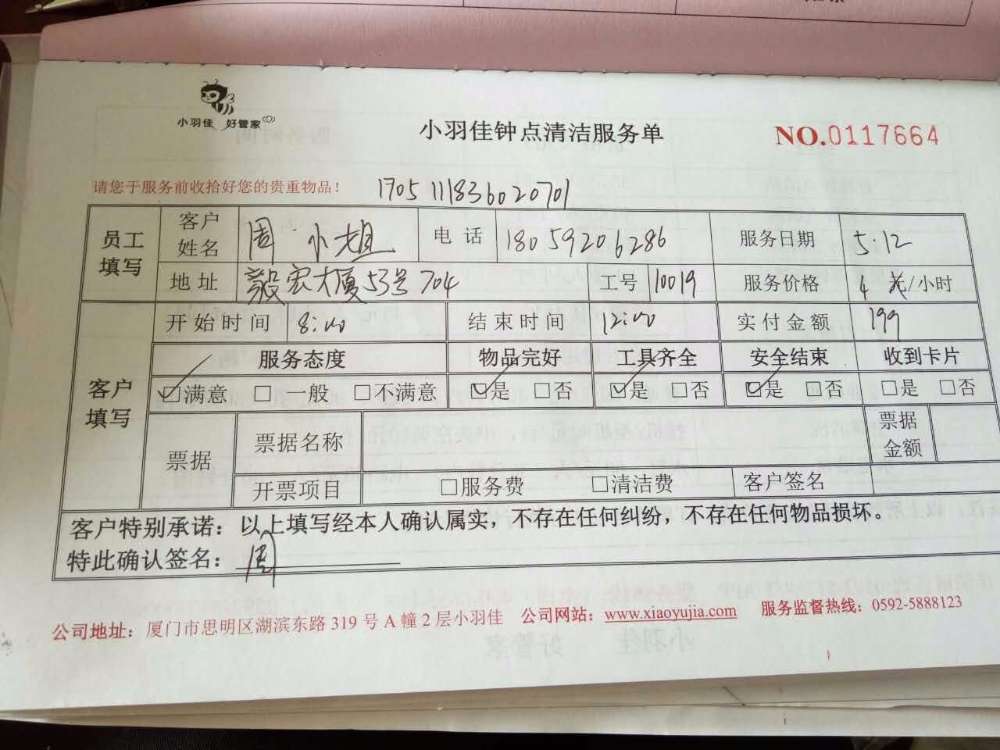 小羽佳 好管家
小羽佳钟点清洁服务单
NO.0117664
请您于服务前收拾好您的贵重物品！ 1705111836020701
员工填写 客户姓名 周小姐 电话 18059206286 服务日期 5.12
地址 毅宏大厦53号704 工号 10019 服务价格 4 /小时
客户填写 开始时间 8:00 结束时间 12:00 实付金额 199
服务态度 物品完好 工具齐全 安全结束 收到卡片
☑满意 □一般 □不满意 ☑是 □否 ☑是 □否 ☑是 □否 □是 □否
票据 票据名称 票据金额
开票项目 □服务费 □清洁费 客户签名
客户特别承诺：以上填写经本人确认属实，不存在任何纠纷，不存在任何物品损坏。
特此确认签名：周
公司地址：厦门市思明区湖滨东路319号A幢2层小羽佳 公司网站：www.xiaoyujia.com 服务监督热线：0592-5888123